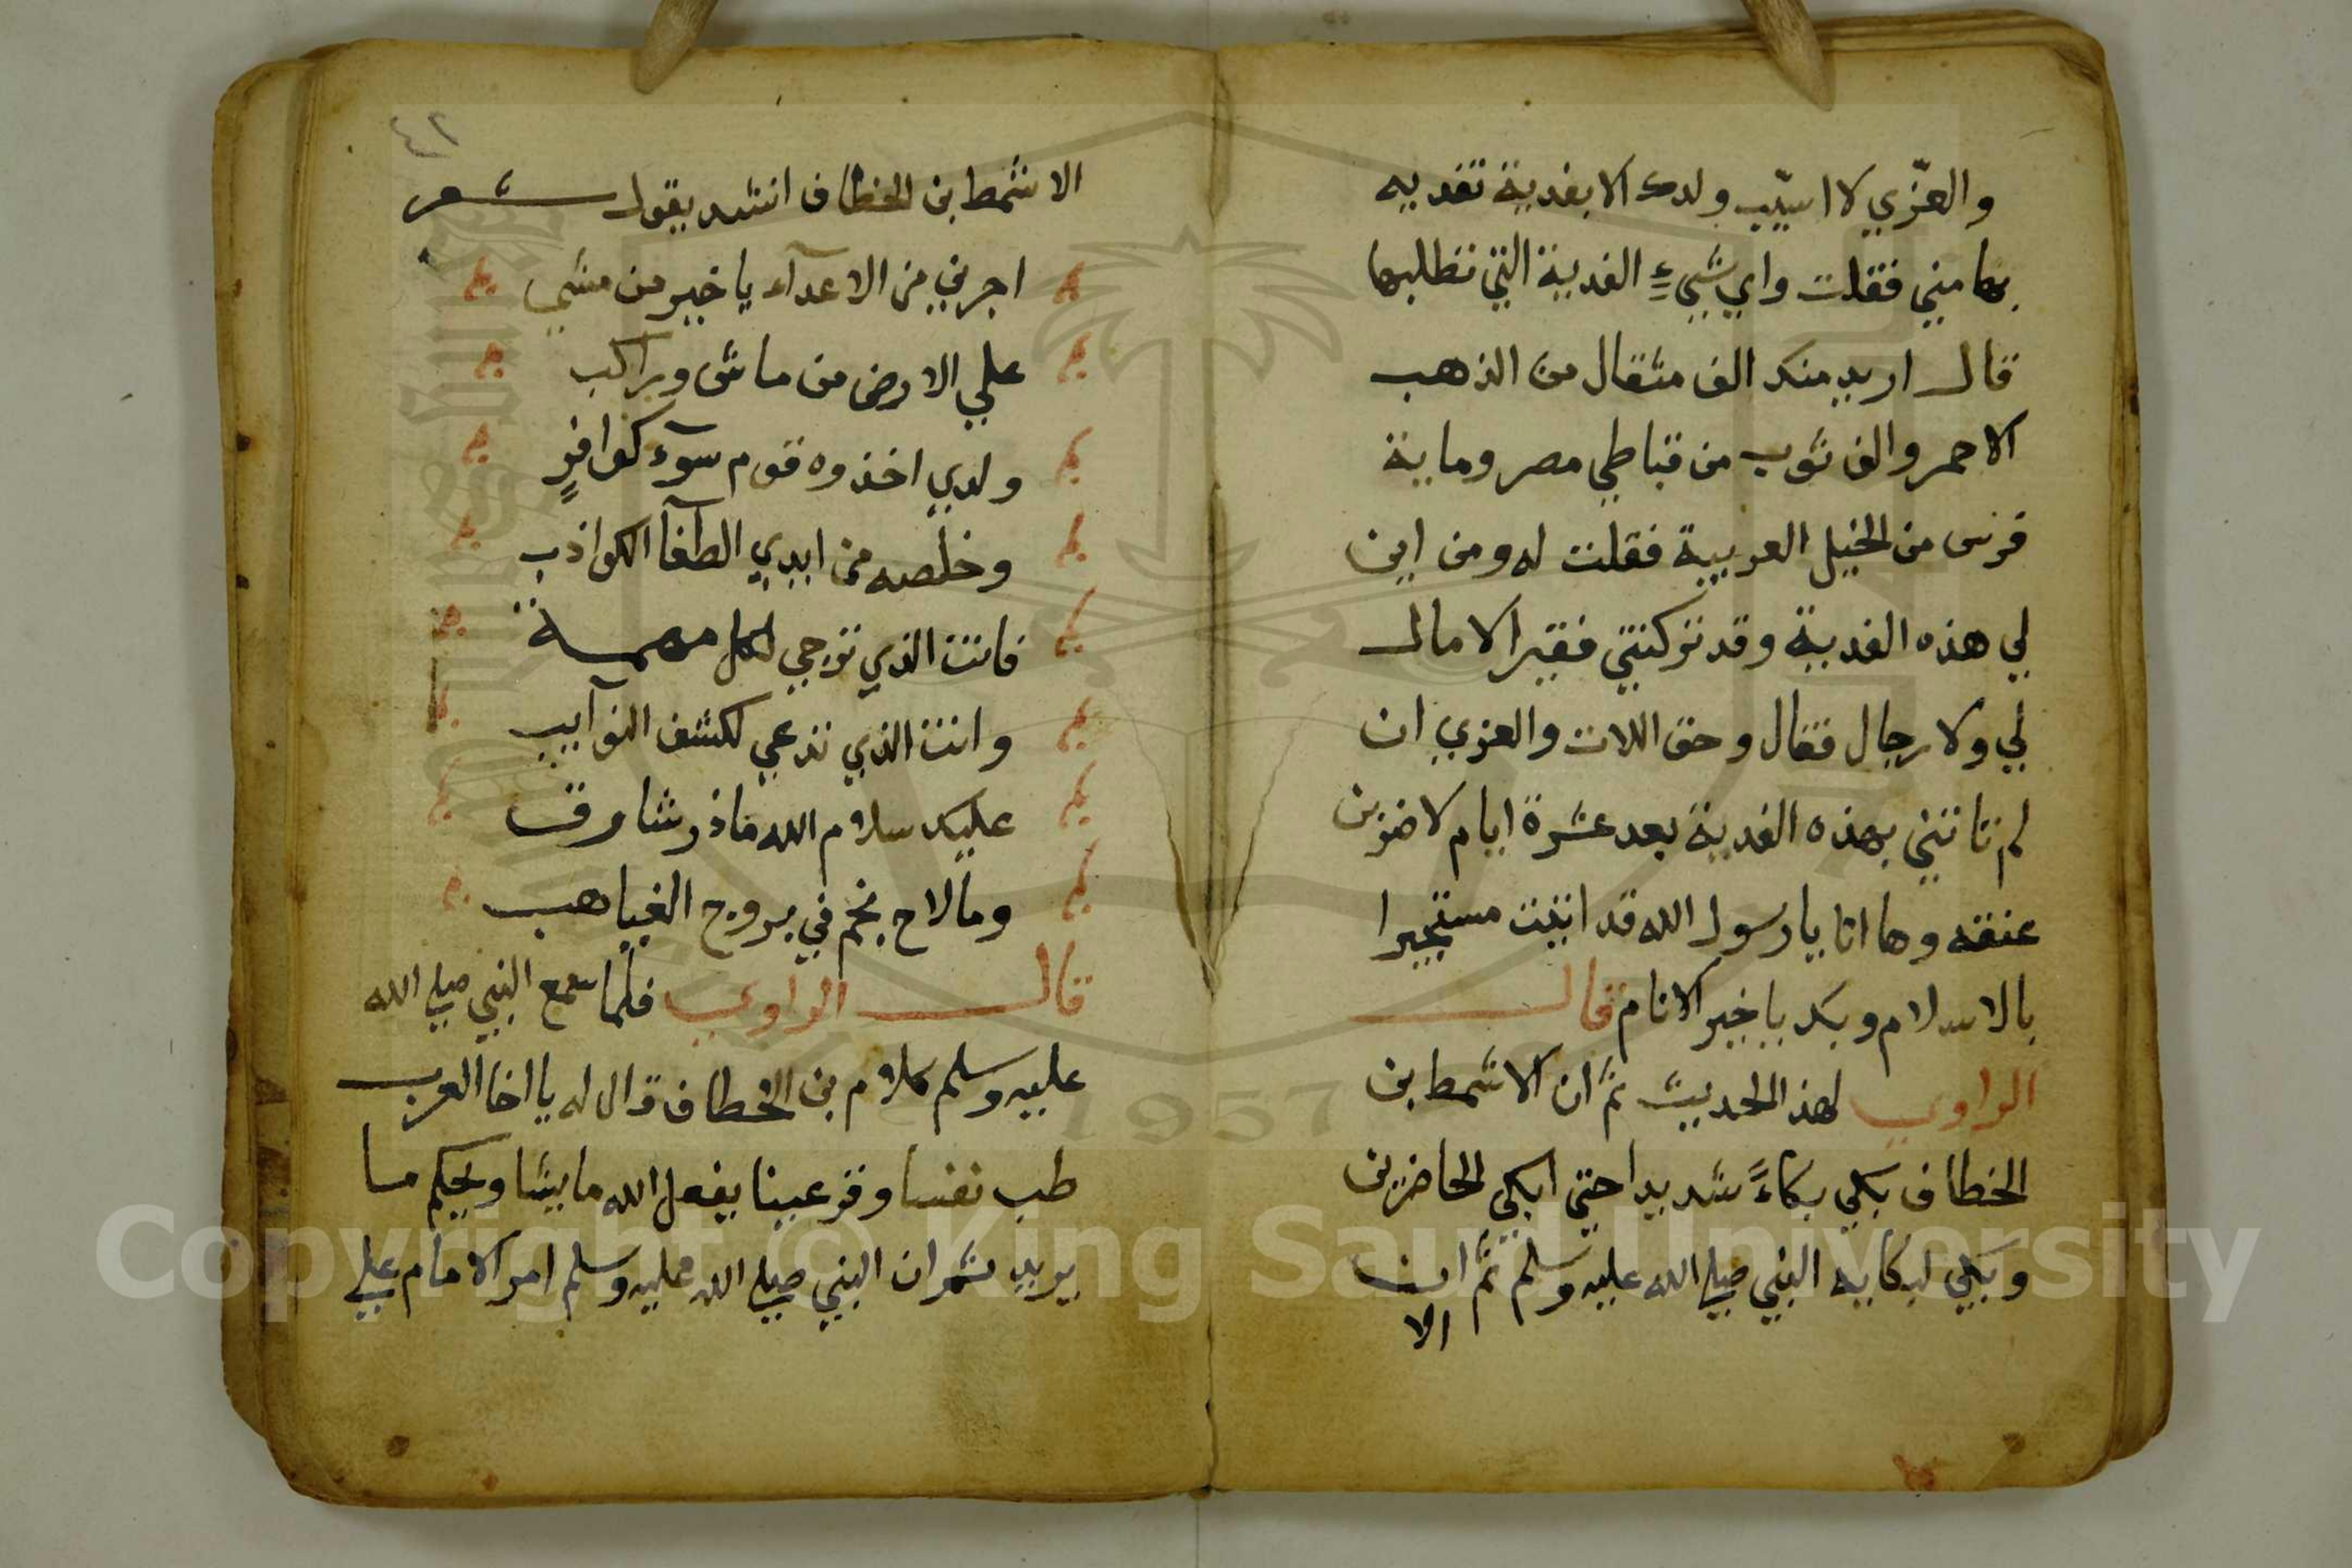 والعزّي لا اسيّب ولدك الا بفدية تفديه
بها مني فقلت واي شيء الفدية التي تطلبها
قال اريد منك الف مثقال من الذهب
الاحمر والف ثوب من قباطي مصر وماية
فرس من الخيل العربية فقلت له ومن اين
لي هذه الفدية وقد تركتني فقير الا مال
لي ولا رجال فقال وحق اللات والعزي ان
لم تاتني بهذه الفدية بعد عشرة ايام لاضربن
عنقه وها انا يا رسول الله قد اتيت مستجيرا
بالاسلام وبك يا خير الانام قال
الراوي لهذ الحديث ثمّ ان الاشمط بن
الخطاف بكي بكاءً شديدا حتي ابكي الحاضرين
وبكي لبكايه النبي صلي الله عليه وسلم ثمّ ان
الا
٤٢
الاشمط بن الخطاف انشد يقول شعر
اجرني من الاعدآء يا خير من مشي
علي الارض من ماش وراكب
ولدي اخذوه قوم سوٓء كوافرٍ
وخلصه من ايدي الطغآ الكواذب
فانت الذي ترجي لكل مهمة
وانت الذي تدعي لكشف النوآيب
عليك سلام الله ماذر شارق
وما لاح نجم في بروج الغياهب
قال الراوي فلما سمع النبي صلي الله
عليه وسلم كلام بن الخطاف قال له يا اخا العرب
طب نفسا وقر عينا يفعل الله ما يشا ويحكم ما
يريد ثم ان النبي صلي الله عليه وسلم امر الامام علي
1957
Copyright © King Saud University